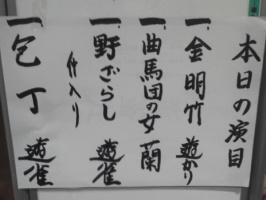 本日の演目
一、金明竹 遊かり
一、曲馬団の女 蘭
一、野ざらし 遊雀
仲入り
一、包丁 遊雀